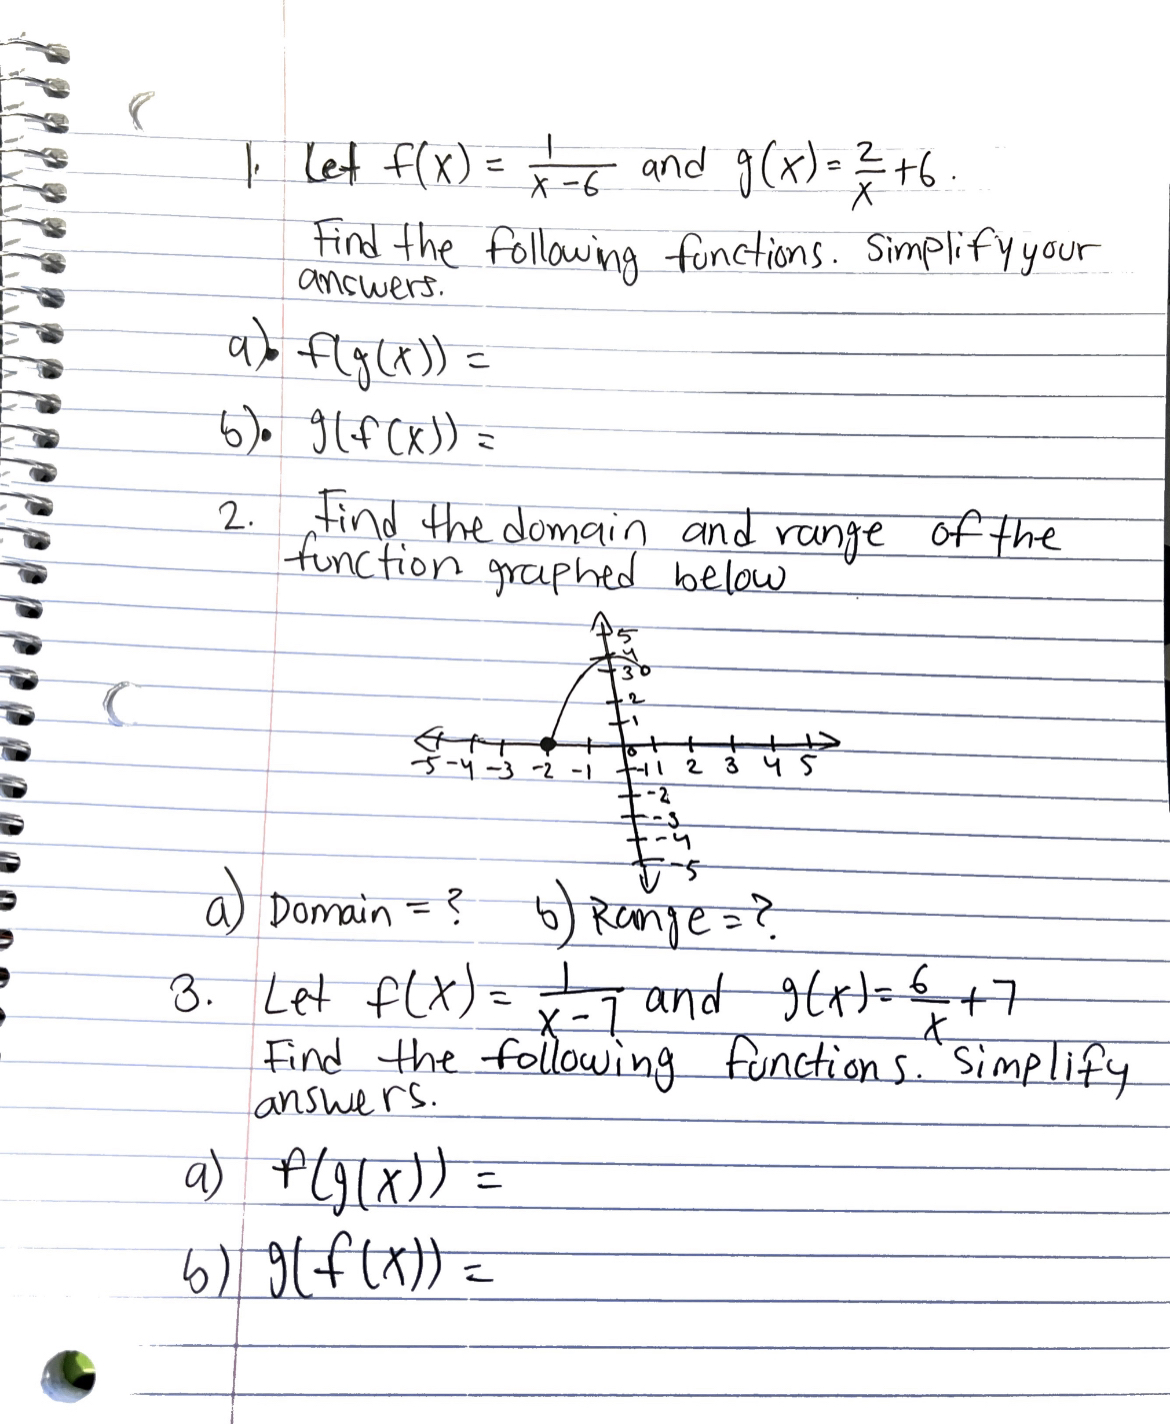 1. Let f(x) = 1/(x-6) and g(x) = 2/x + 6.
Find the following functions. Simplify your
answers.
a). f(g(x)) =
b). g(f(x)) =
2. Find the domain and range of the
function graphed below
5
4
3
2
1
-5 -4 -3 -2 -1 0 1 2 3 4 5
-1
-2
-3
-4
-5
a) Domain = ? b) Range = ?
3. Let f(x) = 1/(x-7) and g(x) = 6/x + 7
Find the following functions. Simplify
answers.
a) f(g(x)) =
b) g(f(x)) =